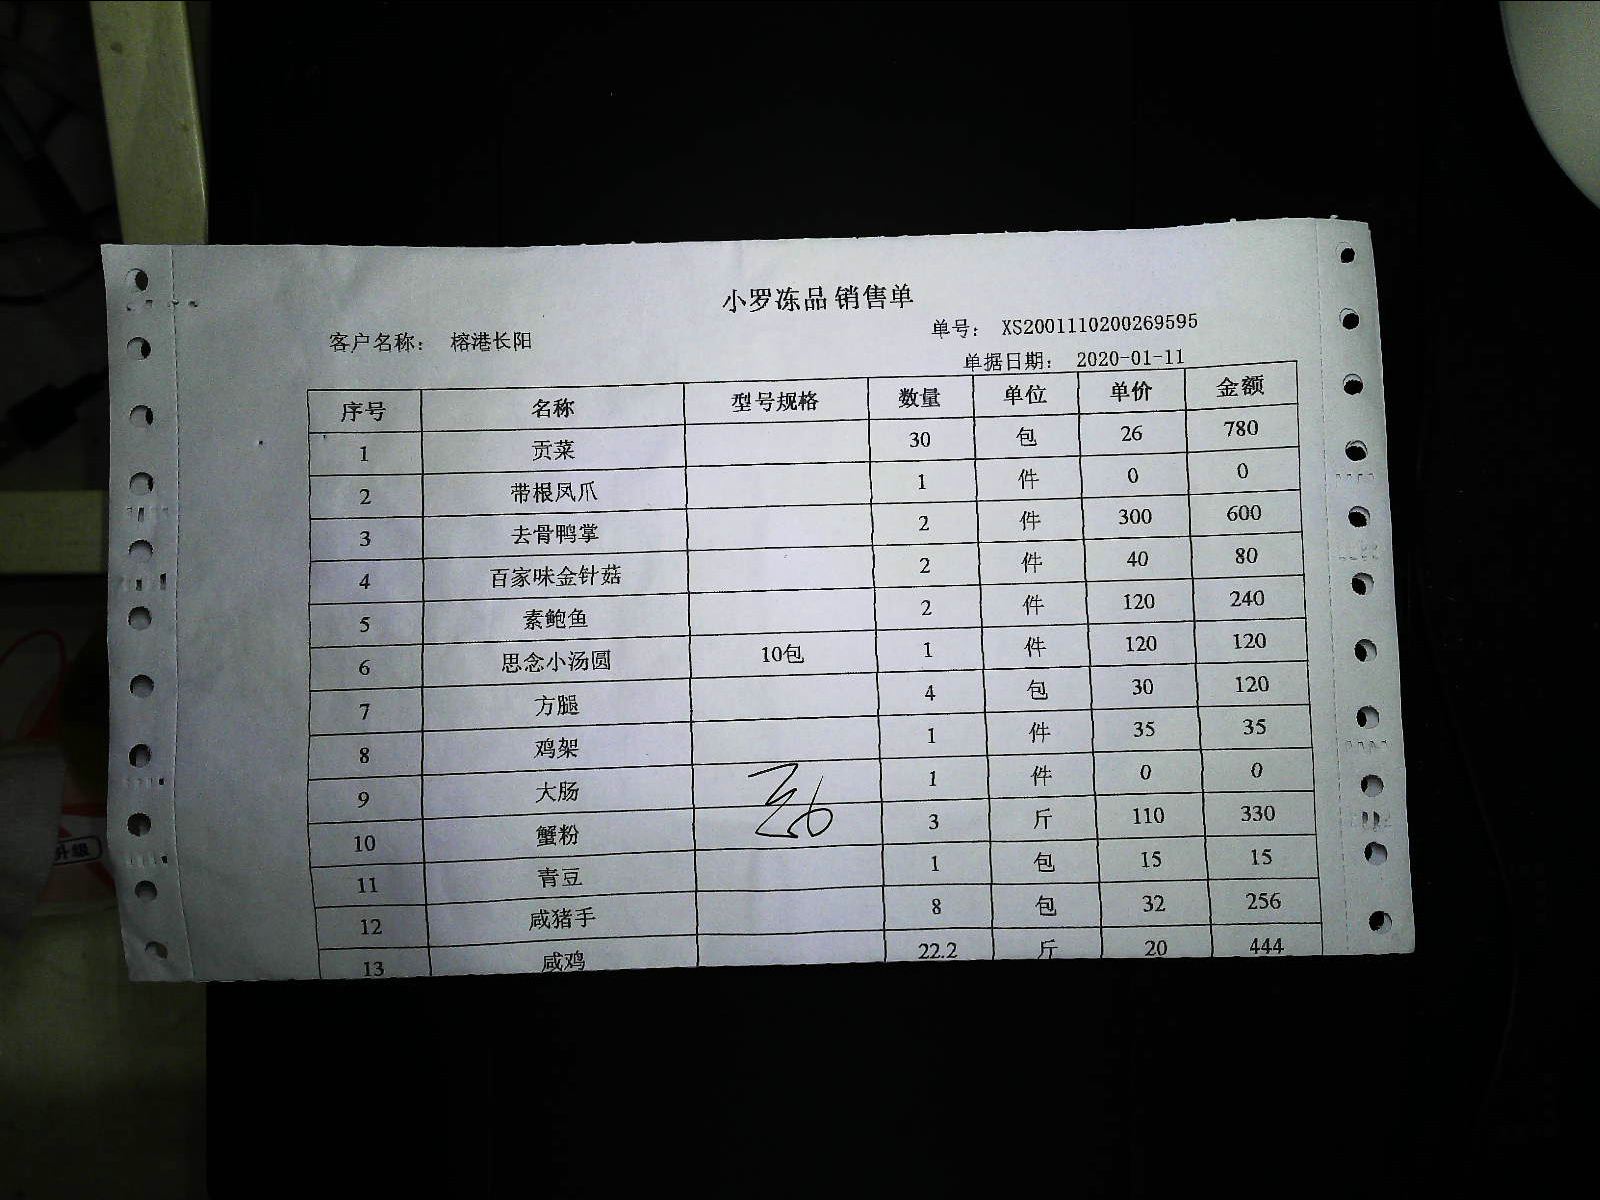 小罗冻品 销售单
客户名称： 榕港长阳 单号： XS2001110200269595
单据日期： 2020-01-11
序号 名称 型号规格 数量 单位 单价 金额
1 贡菜 30 包 26 780
2 带根凤爪 1 件 0 0
3 去骨鸭掌 2 件 300 600
4 百家味金针菇 2 件 40 80
5 素鲍鱼 2 件 120 240
6 思念小汤圆 10包 1 件 120 120
7 方腿 4 包 30 120
8 鸡架 1 件 35 35
9 大肠 1 件 0 0
10 蟹粉 3 斤 110 330
11 青豆 1 包 15 15
12 咸猪手 8 包 32 256
13 咸鸡 22.2 斤 20 444
升级